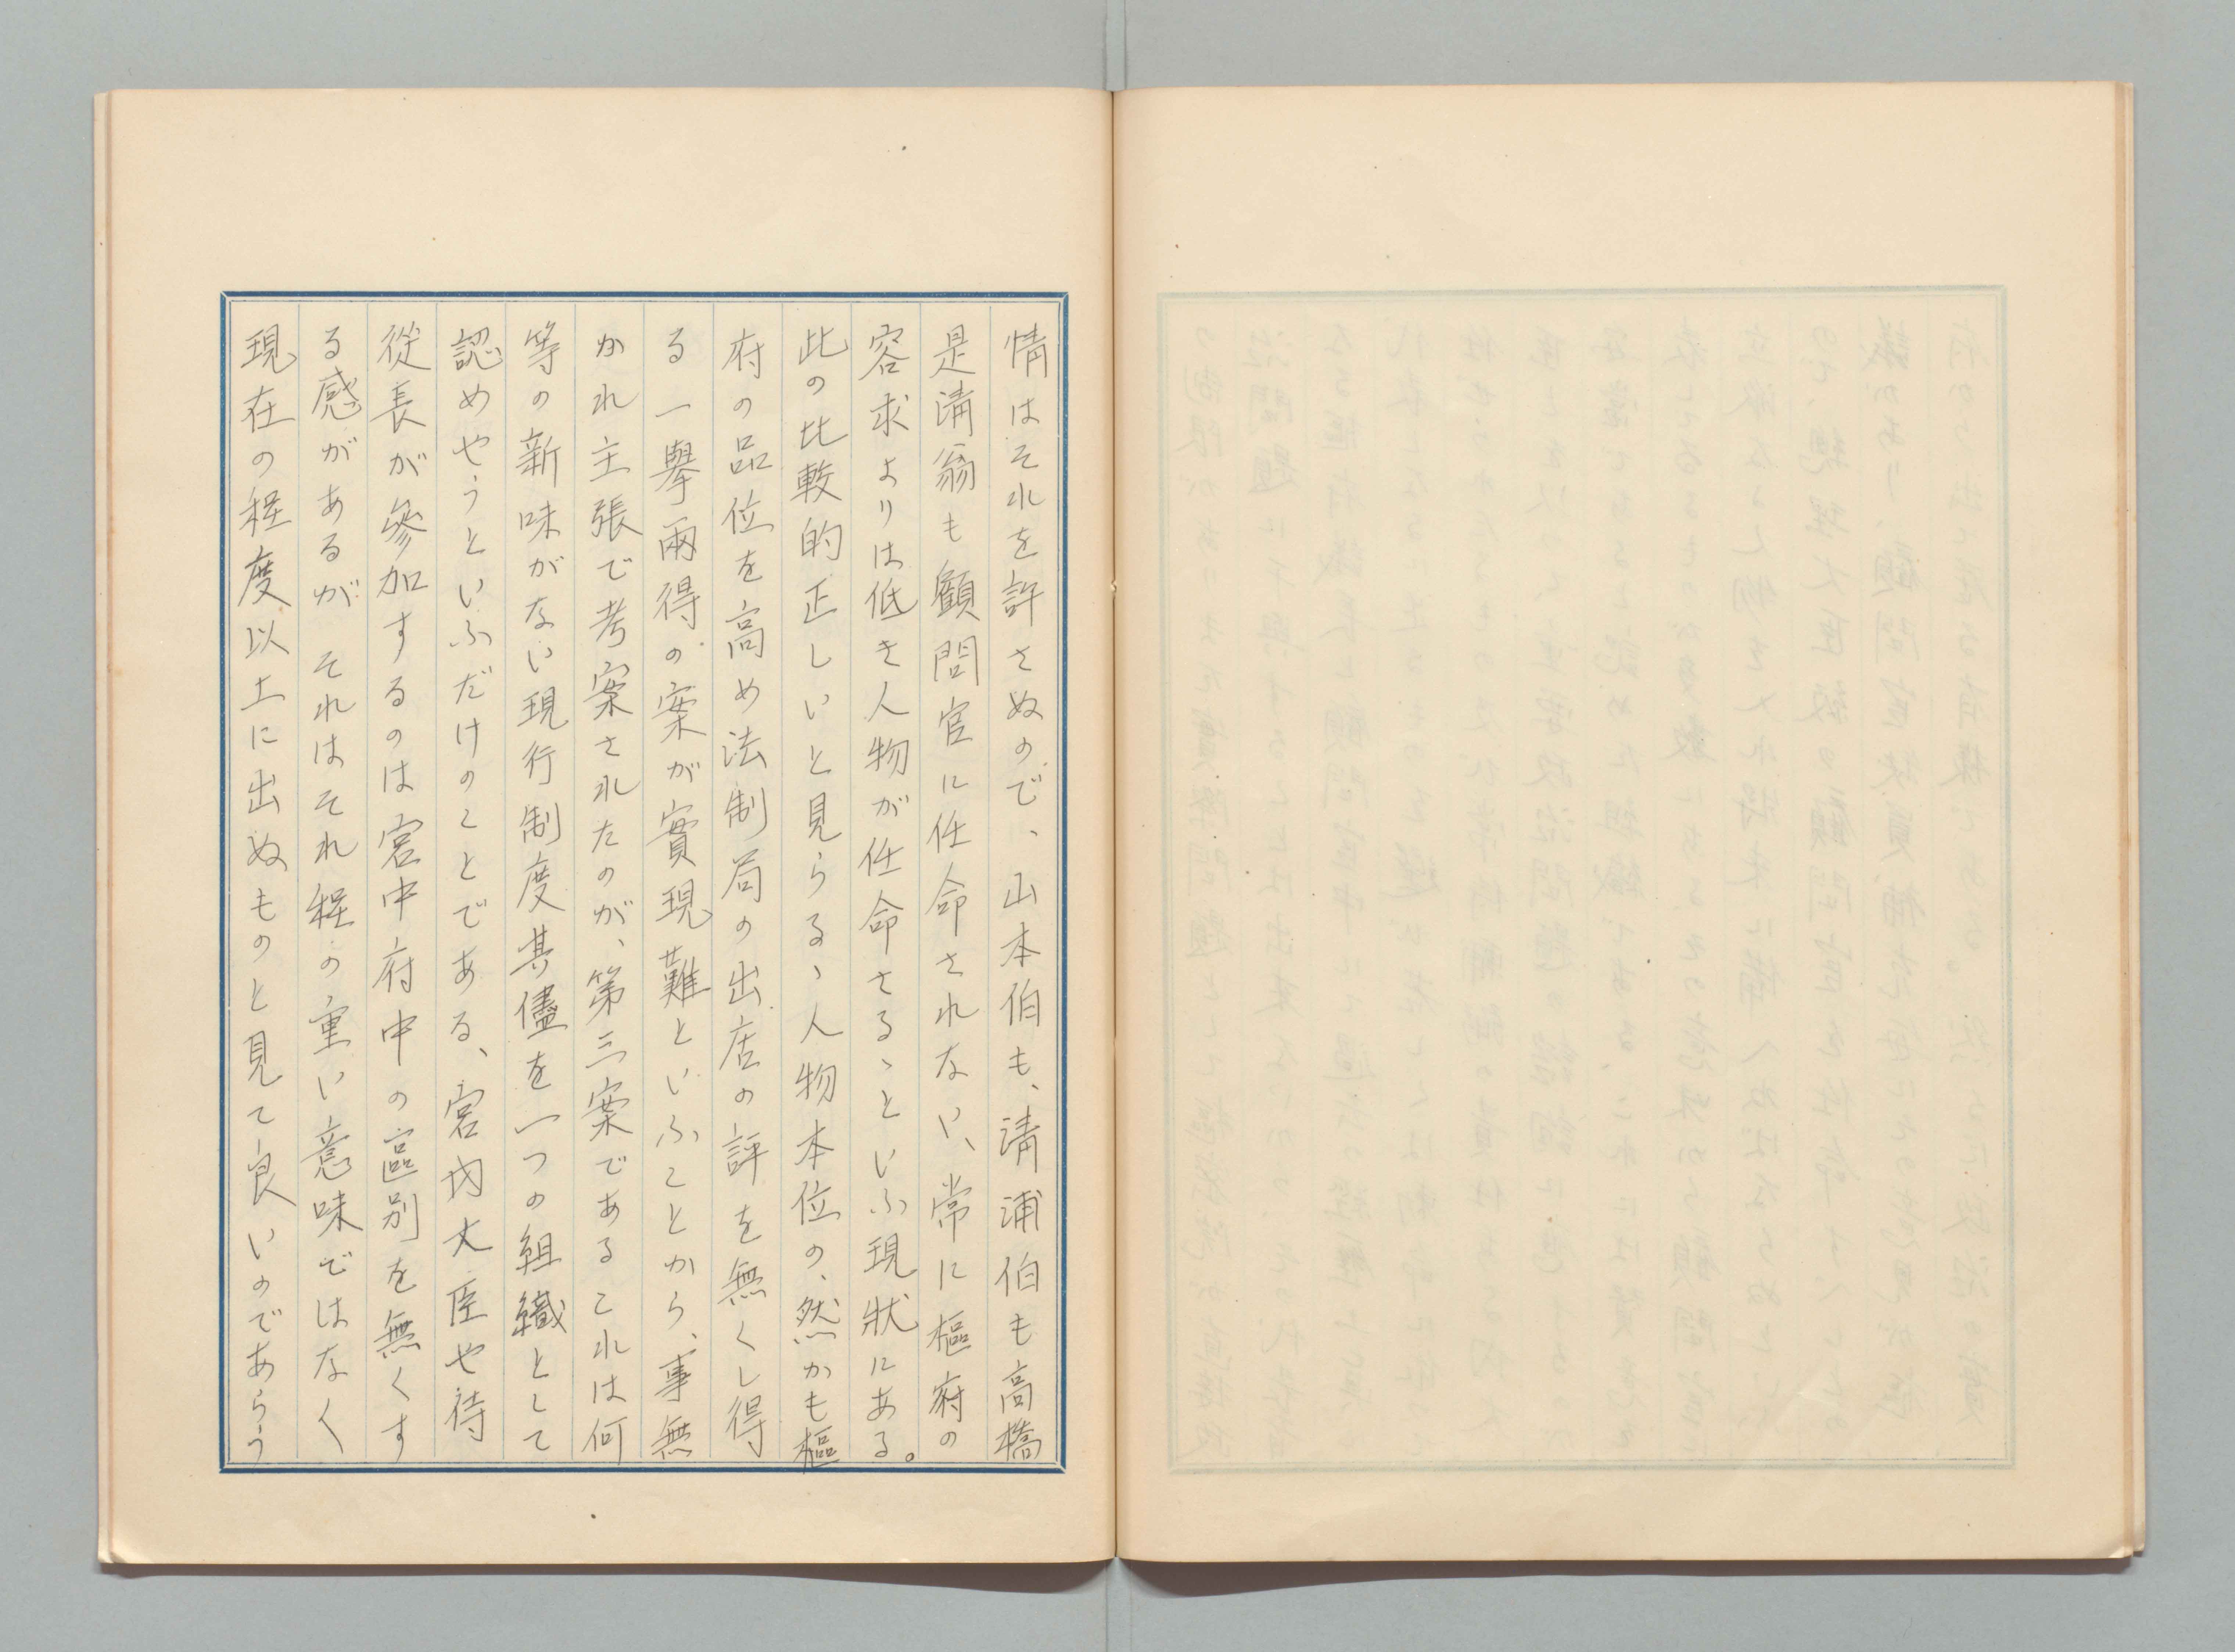 情はそれを許さぬので、山本伯も、淸浦伯も高橋
是淸翁も顧問官に任命されない、常に樞府の
容求よりは低き人物が任命さるゝといふ現狀にある。
此の比較的正しいと見らるゝ人物本位の、然かも樞
府の品位を高め法制局の出店の評を無くし得
る一擧兩得の案が實現難といふことから、事無
かれ主張で考案されたのが、第三案であるこれは何
等の新味がない現行制度其儘を一つの組織として
認めやうといふだけのことである、宮内大臣や侍
從長が參加するのは宮中府中の區別を無くす
る感があるが それはそれ程の重い意味ではなく
現在の程度以上に出ぬものと見て良いのであらう